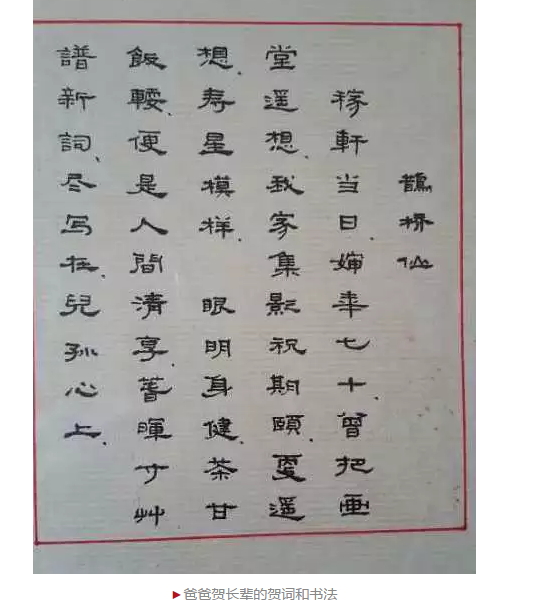 鵲桥仙
稼軒当日、婶年七十、曾把画
堂遥想、我家集影祝期頤、更遥
想、寿星模样、 眼明身健、茶甘
飯輭、便是人間清享、萱暉寸艸
譜新詞、尽写在、兒孙心上、
爸爸贺长辈的贺词和书法